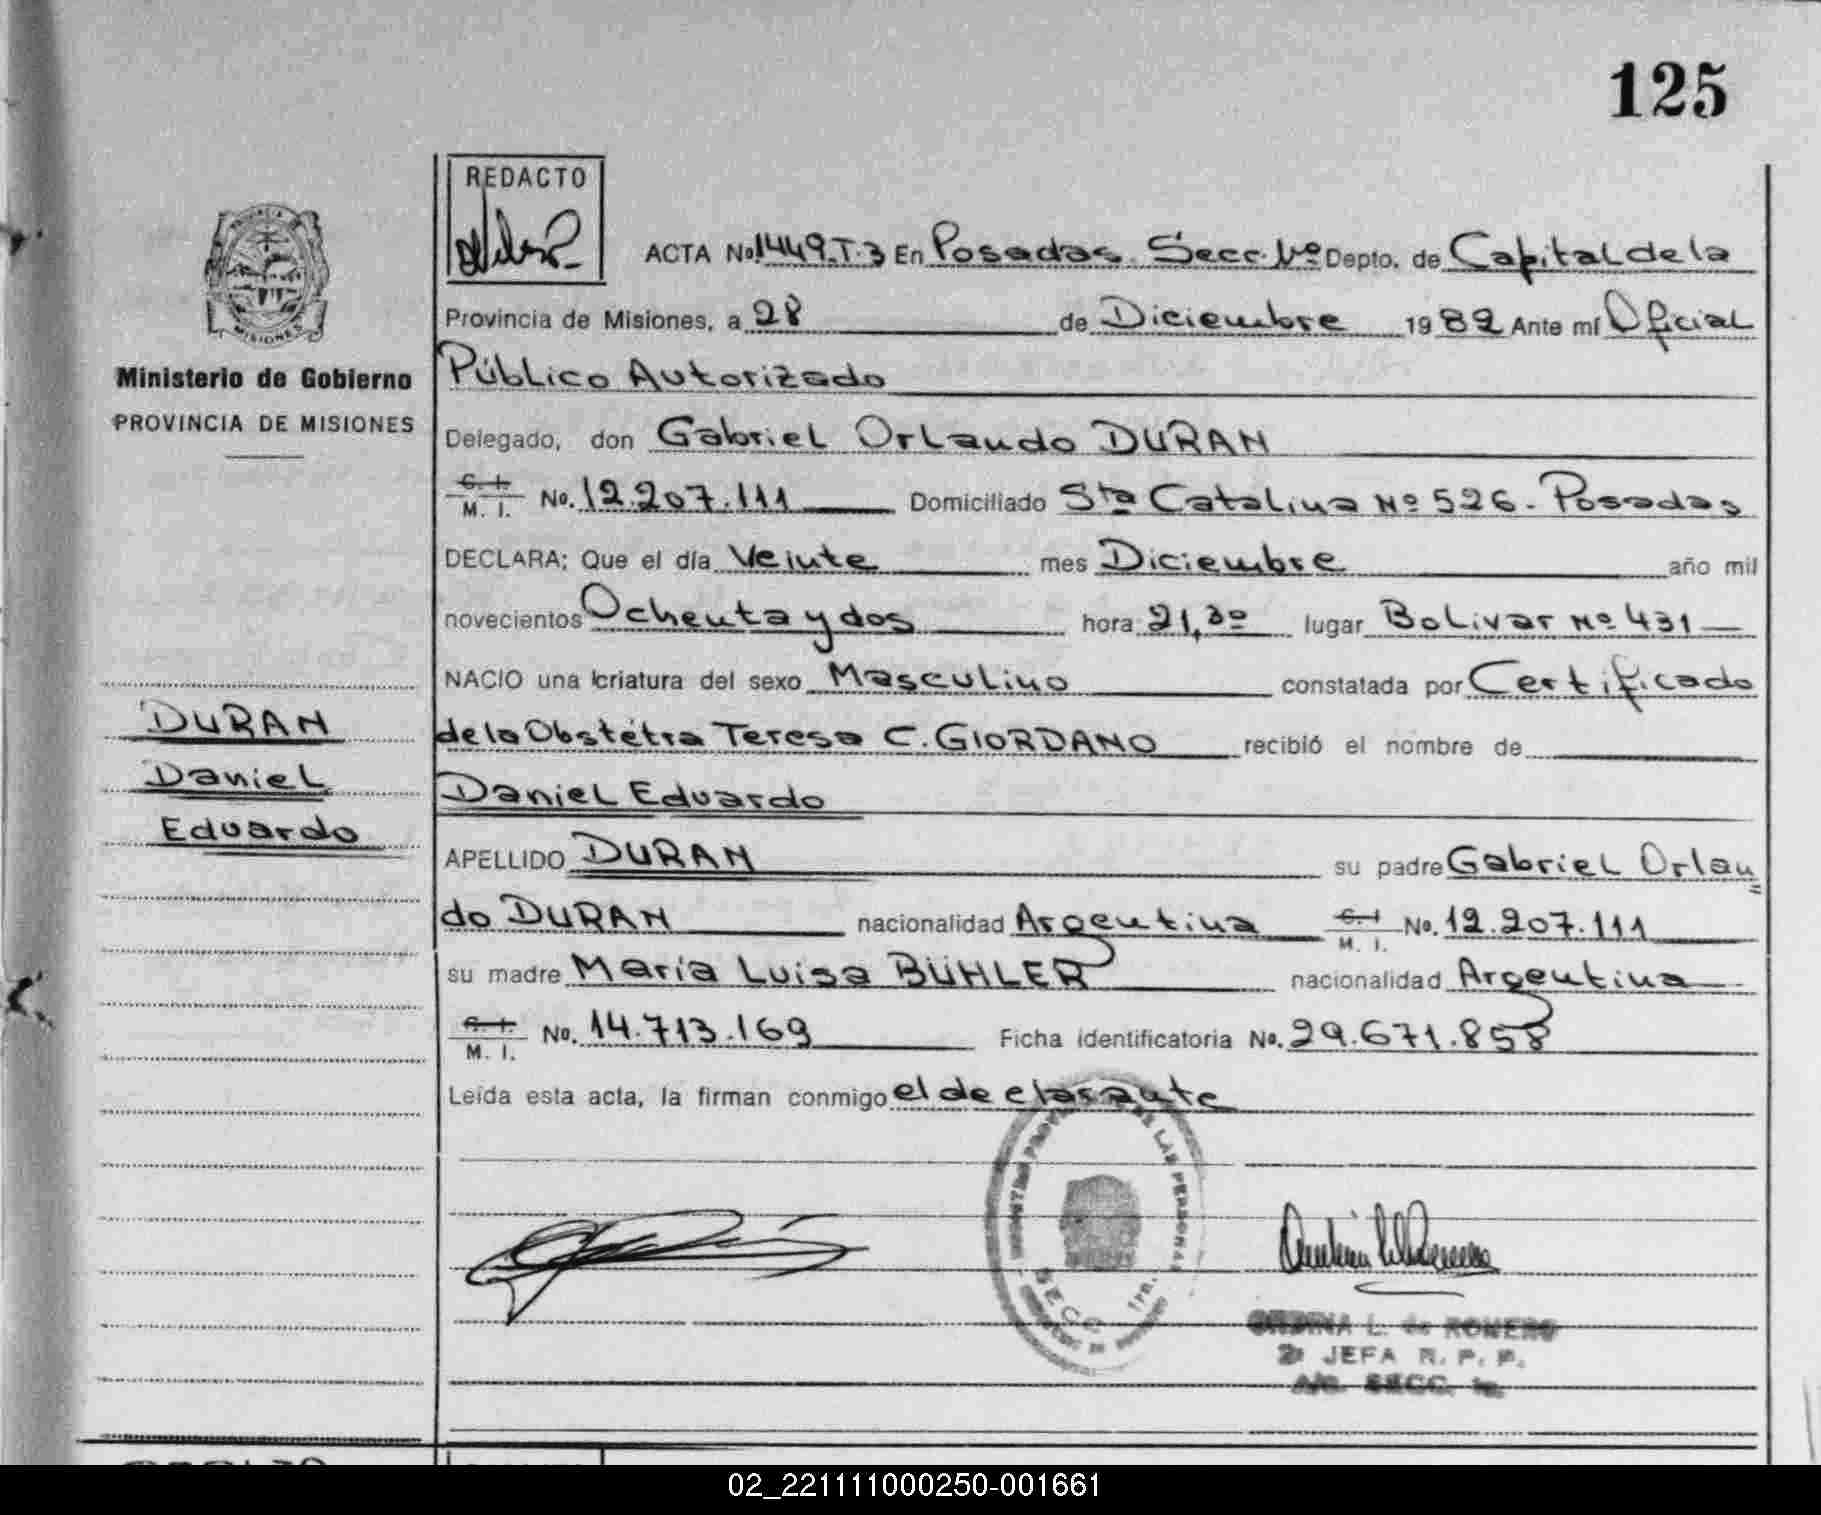 125
REDACTO
ACTA No. 1449.T.3 En Posadas. Secc. 1º Depto. de Capital de la
Provincia de Misiones, a 28 de Diciembre 1982 Ante mí Oficial
Público Autorizado
Delegado, don Gabriel Orlando DURAN
C. I.
M. I. No. 12.207.111 Domiciliado Sta Catalina Nº 526 - Posadas
DECLARA: Que el día Veinte mes Diciembre año mil
novecientos Ochenta y dos hora 21,30 lugar Bolivar Nº 431
NACIO una criatura del sexo Masculino constatada por Certificado
de la Obstétra Teresa C. GIORDANO recibió el nombre de
Daniel Eduardo
APELLIDO DURAN su padre Gabriel Orlan
do DURAN nacionalidad Argentina C. I
M. I. No. 12.207.111
su madre María Luisa BÜHLER nacionalidad Argentina
C. I.
M. I. No. 14.713.169 Ficha identificatoria No. 29.671.858
Leída esta acta, la firman conmigo el declarante
MISIONES
Ministerio de Gobierno
PROVINCIA DE MISIONES
DURAN
Daniel
Eduardo
DE LAS PERSONAS
SECC. 1ra.
L. de ROMERO
2ª JEFA R. P. P.
A/C. SECC. 1a.
02_221111000250-001661